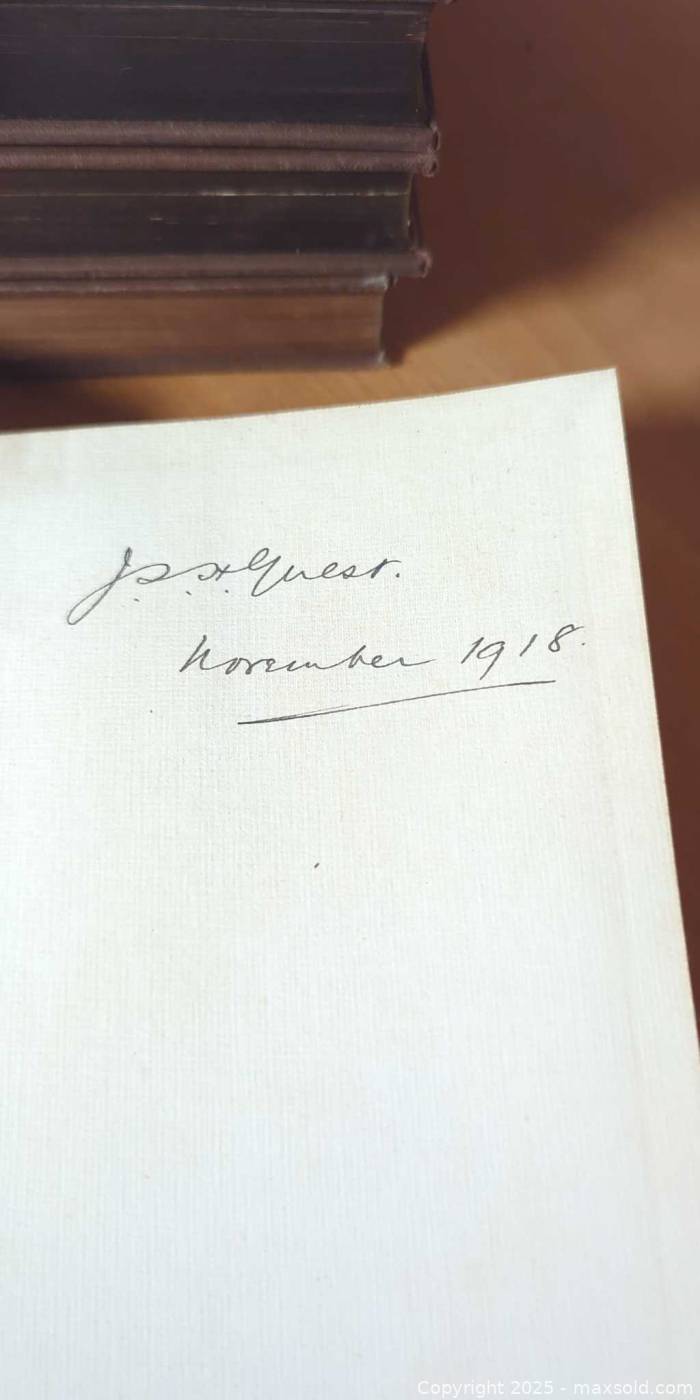 J. S. H. Guest.
November 1918.
Copyright 2025 - maxsold.com